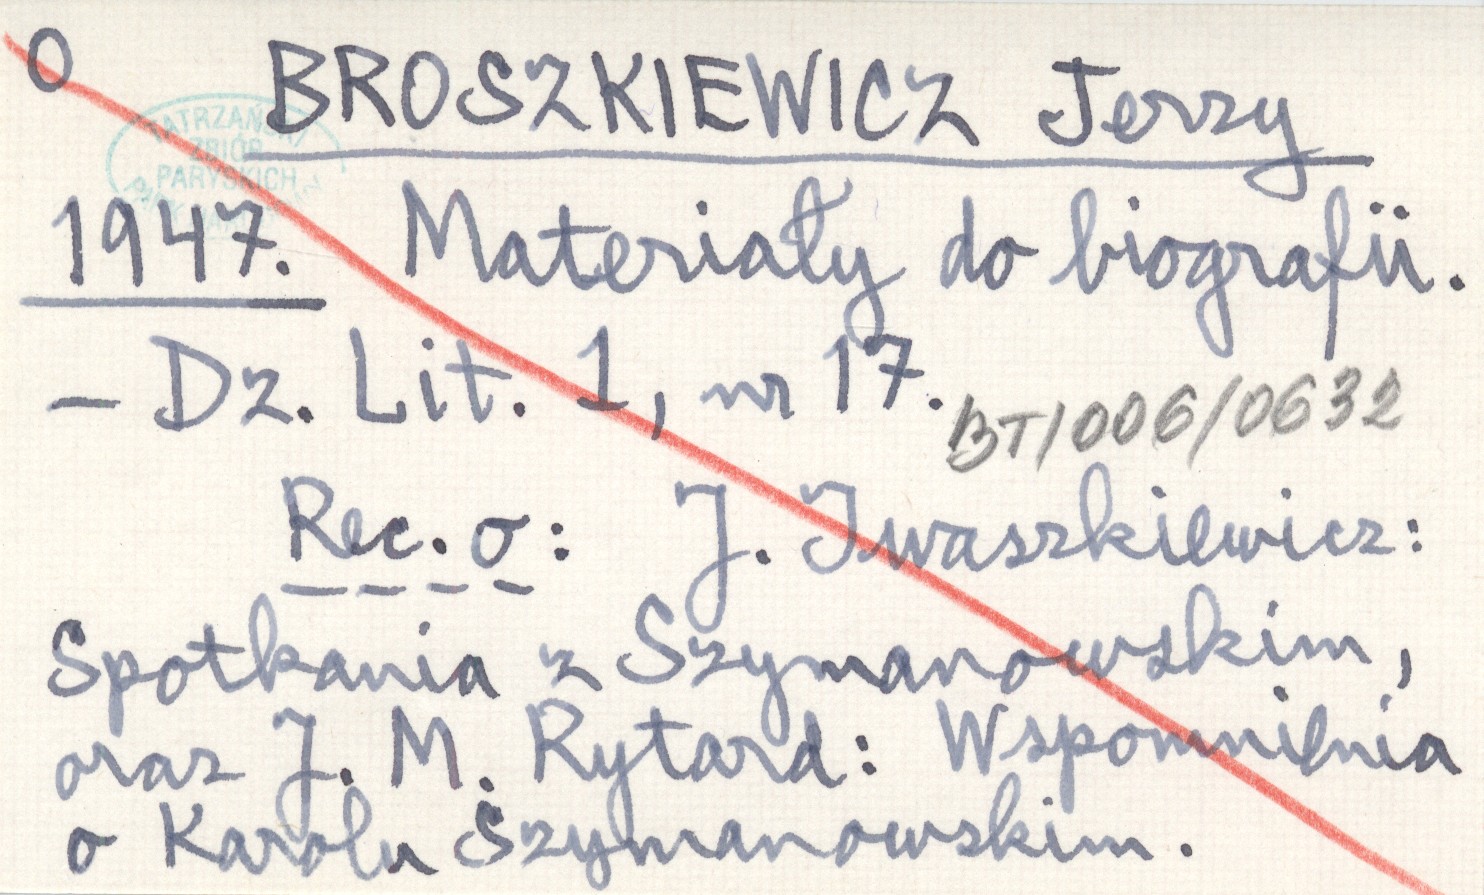 O BROSZKIEWICZ Jerzy
TATRZAŃSKI
ZBIÓR
PARYSKICH
1947. Materiały do biografii.
– Dz. Lit. 1, nr 17.
BT/006/0632
Rec. o: J. Iwaszkiewicz:
Spotkania z Szymanowskim,
oraz J. M. Rytard: Wspomnienia
o Karolu Szymanowskim.